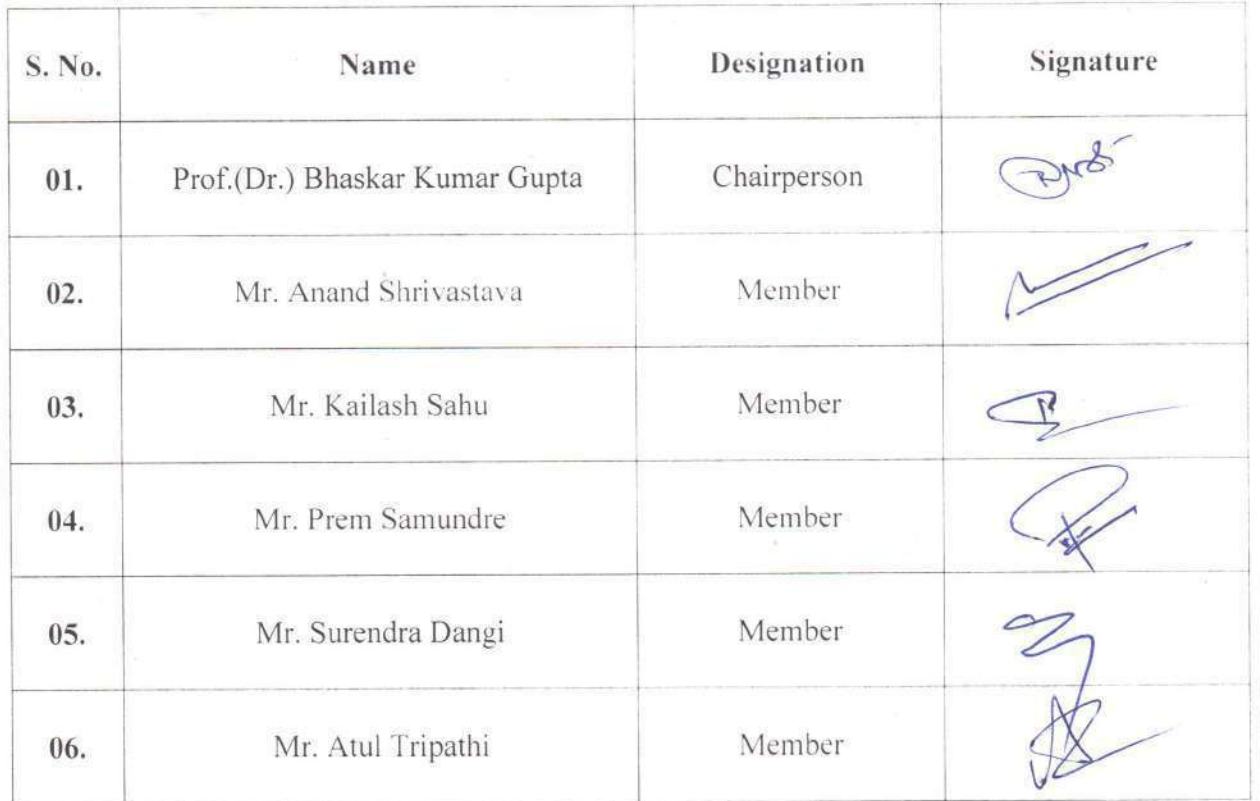 S. No. Name Designation Signature
01. Prof.(Dr.) Bhaskar Kumar Gupta Chairperson
02. Mr. Anand Shrivastava Member
03. Mr. Kailash Sahu Member
04. Mr. Prem Samundre Member
05. Mr. Surendra Dangi Member
06. Mr. Atul Tripathi Member